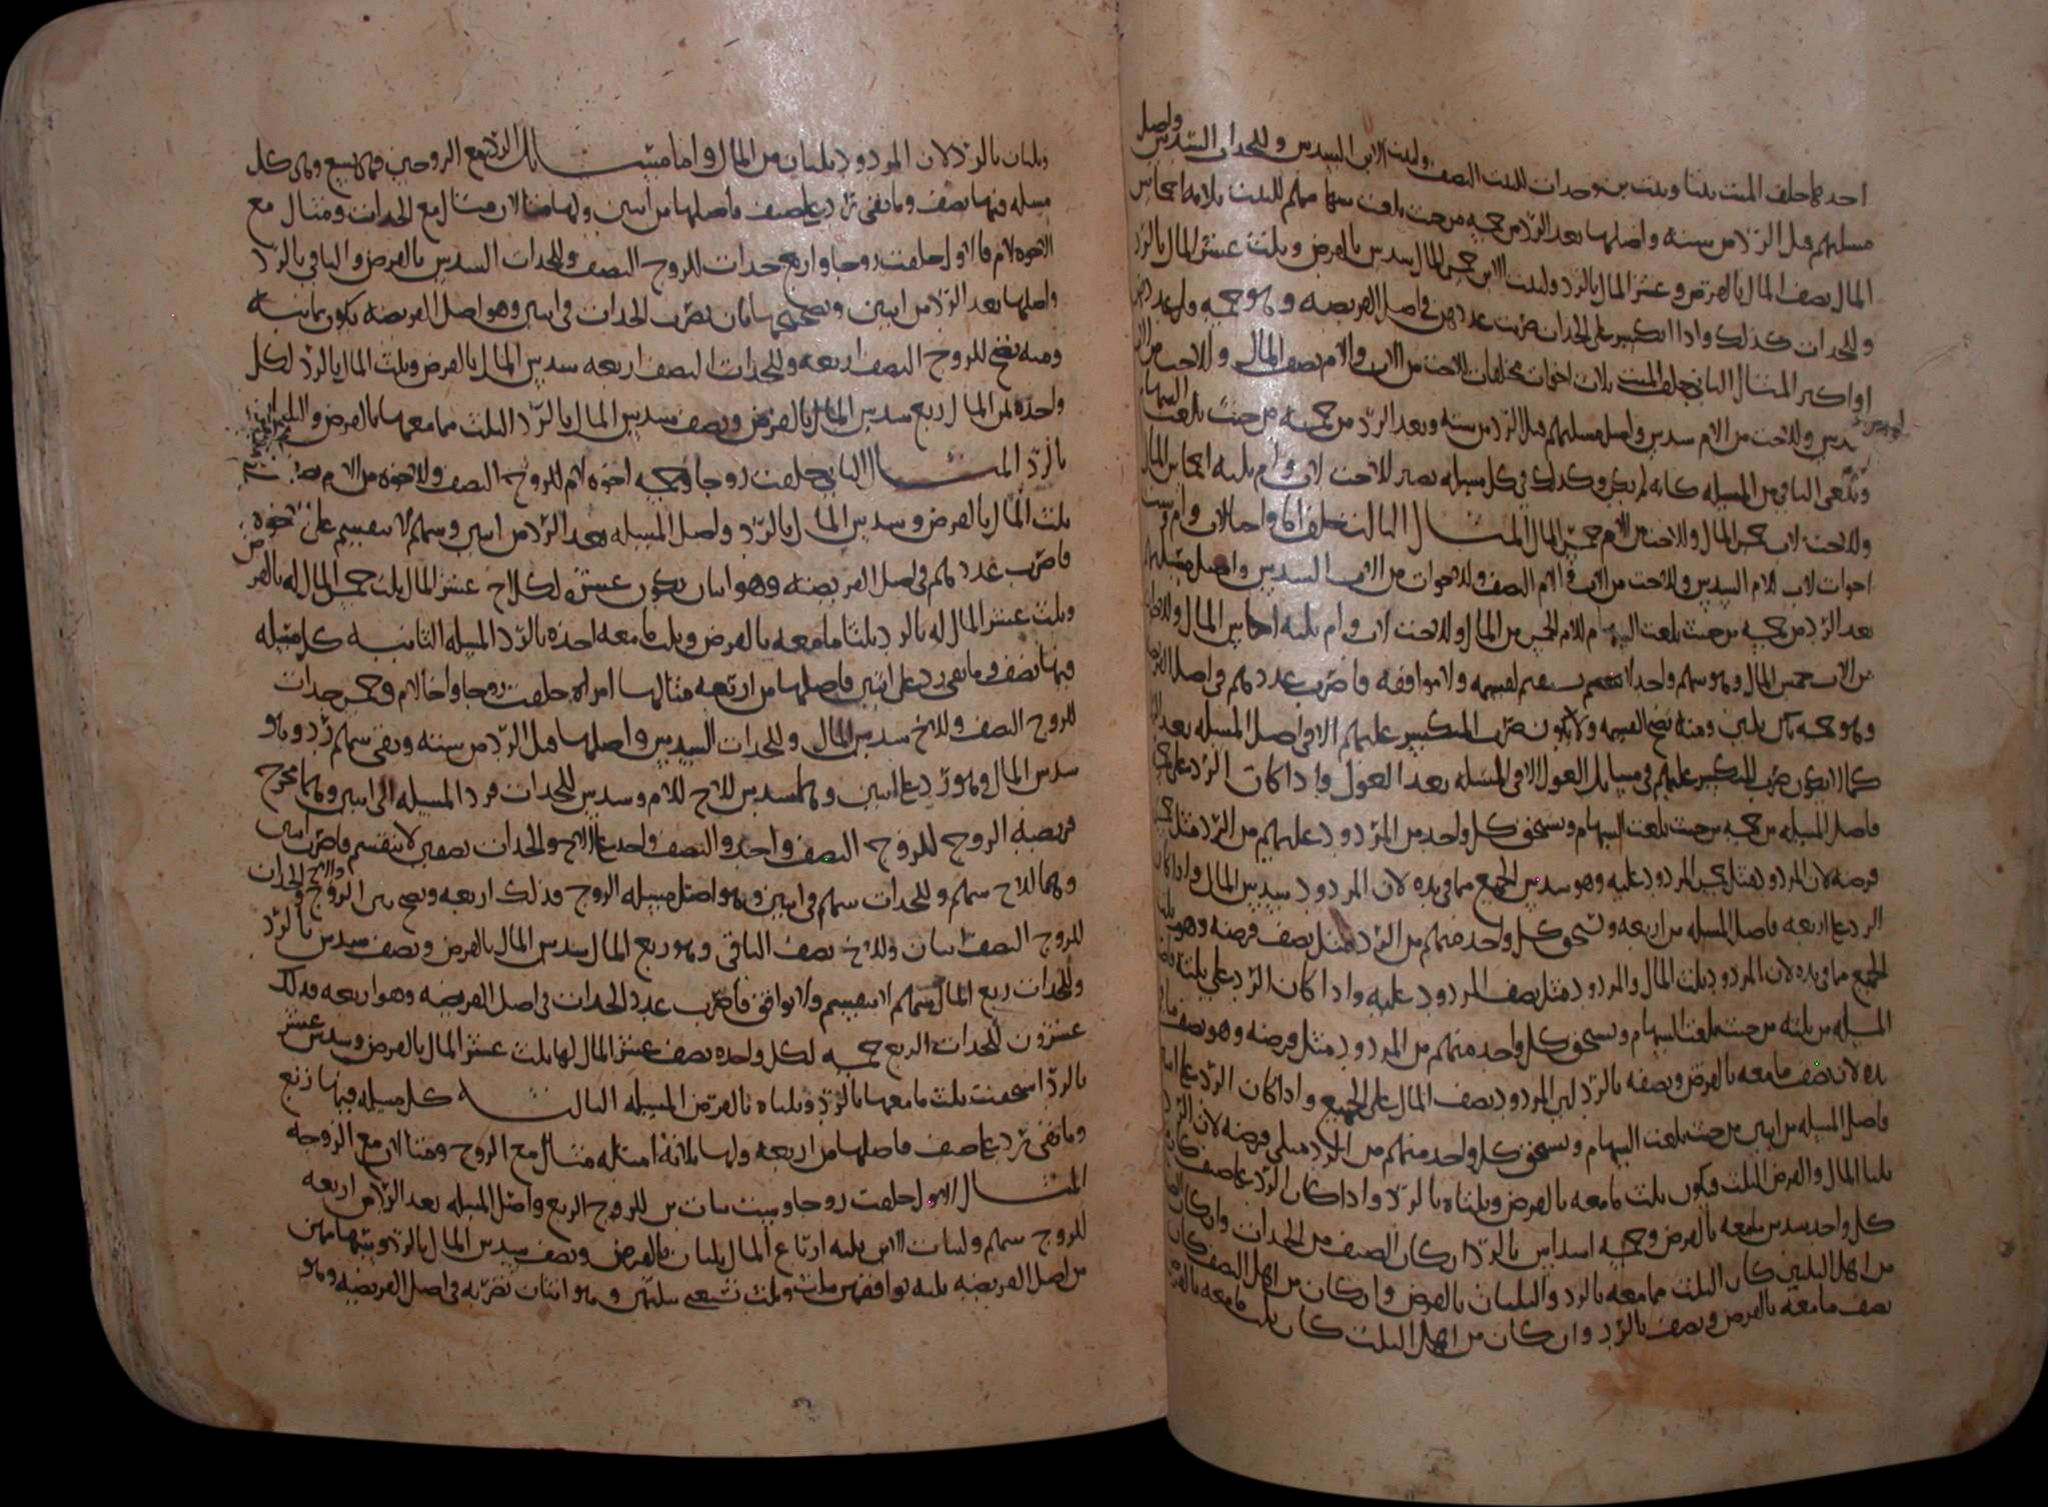 احدها خلف الميت بنتا وبنت بن وجدات للبنت النصف ولبنت الابن السدس وللجدات السدس واصل
مسلتهم قبل الرد من سته واصلها بعد الرد من خمسه من حيث بلغت سهامهم للبنت ثلاثه اخماس
المال نصف المال بالفرض وعشر المال بالرد ولبنت الابن خمس المال سدس بالفرض وثلث عشر المال بالرد
وللجدات كذلك واذا انكسر على الجدات ضربت عددهن في اصل الفريضه وهو خمسه
او اكثر المثال الثاني خلف الميت ثلاث اخوات مختلفات للاخت من الاب والام نصف المال وللاخت من الاب
سدس وللاخت من الام سدس واصل مسلتهم قبل الرد من سته وبعد الرد من خمسه من حيث بلغت السهام
ويلغى الباقي من المسله كانه لم يكن وكذلك في كل مسله يصير للاخت لاب وام ثلثه اخماس المال
وللاخت لاب خمس المال وللاخت من الام خمس المال المثال الثالث خلف اما واختا لاب وام وست
اخوات لاب للام السدس وللاخت من الاب والام النصف وللاخوات من الاب السدس واصل مسلتهم
بعد الرد من خمسه من حيث بلغت السهام للام الخمس من المال وللاخت لاب وام ثلثه اخماس المال وللاخوات
من الاب خمس المال وهو سهم واحد لا ينقسم عليهم لقسمه ولا موافقه فاضرب عددهم في اصل الفريضه
وهو خمسه تكن ثلثين ومنه تصح القسمه ولا يكون ضرب المنكسر عليهم الا في اصل المسله بعد الرد
كما لا يكون ضرب المنكسر عليهم في مسايل العول الا في المسله بعد العول واذا كان الرد على خمسه
فاصل المسله من خمسه من حيث بلغت السهام ويستحق كل واحد من المردود عليهم من الرد مثل خمس
فرضه لان المردود مثل خمس المردود عليه وهو سدس الجميع مما في يده لان المردود سدس المال واذا كان
الرد على اربعه فاصل المسله من اربعه ويستحق كل واحد منهم من الرد مثل نصف فرضه وهو ثلث
الجميع مما في يده لان المردود ثلث المال والمردود مثل نصف المردود عليه واذا كان الرد على ثلثه فاصل
المسله من ثلثه من حيث بلغت السهام ويستحق كل واحد منهم من المردود مثل فرضه وهو نصف ما في
يده لان نصف ما معه بالفرض ونصفه بالرد لان المردود نصف المال على الجميع واذا كان الرد على اثنين
فاصل المسله من اثنين من حيث بلغت السهام ويستحق كل واحد منهم من الرد مثلي فرضه لان الرد
ثلثا المال والفرض الثلث فيكون ثلث ما معه بالفرض وثلثاه بالرد واذا كان الرد على صنف كان
كل واحد سدس ما معه بالفرض وخمسه اسداس بالرد ان كان الصنف من الجدات وان كان
من اهل الثلثين كان الثلث مما معه بالرد والثلثان بالفرض وان كان من اهل النصف كان
نصف ما معه بالفرض ونصف بالرد وان كان من اهل الثلث كان ثلث ما معه بالفرض
وثلثان بالرد لان المردود ثلثان من المال واما مسايل الرد مع الزوجين فهي سبع وهي كل
مسله فيها نصف وما بقي يرد على صنف فاصلها من اثنين ولها مثالان مثال مع الجدات ومثال مع
الاخوه لام فالاول خلفت زوجا واربع جدات للزوج النصف وللجدات السدس بالفرض والباقي بالرد
واصلها بعد الرد من اثنين وتصحيحها بان تضرب الجدات في اثنين وهو اصل الفريضه يكون ثمانيه
ومنه تصح للزوج النصف اربعه وللجدات النصف اربعه سدس المال بالفرض وثلث المال بالرد لكل
واحده ثمن المال ربع سدس المال بالفرض ونصف سدس المال بالرد الثلث مما معها بالفرض والثلثان
بالرد المثال الثاني خلفت زوجا وخمسه اخوه لام للزوج النصف وللاخوه من الام
ثلث المال بالفرض وسدس المال بالرد واصل المسله بعد الرد من اثنين وسهم لا ينقسم على خمسه
فاضرب عددهم في اصل الفريضه وهو اثنان يكون عشره لكل اخ عشر المال ثلث خمس المال له بالفرض
وثلث عشر المال له بالرد ثلثا ما معه بالفرض وثلث ما معه اخذه بالرد المسله الثانيه كل مسله
فيها نصف وما بقي رد على اثنين فاصلها من اربعه مثالها امراه خلفت زوجا واخا لام وخمس جدات
للزوج النصف وللاخ سدس المال وللجدات السدس واصلها قبل الرد من سته وبقي سهم رد وهو
سدس المال وهو رد على اثنين وهما سدس للاخ للام وسدس للجدات فرد المسله الى اثنين وهما مخرج
فريضه الزوج للزوج النصف واحد والنصف واحد على الاخ والجدات نصفين لا ينقسم فاضرب اثنين
وهما للاخ سهم وللجدات سهم في اثنين وهو اصل مسله الزوج فذلك اربعه وتصح بين الزوج والاخ والجدات
للزوج النصف اثنان وللاخ نصف الباقي وهو ربع المال سدس المال بالفرض ونصف سدس بالرد
وللجدات ربع المال سهم لا ينقسم ولا توافق فاضرب عدد الجدات في اصل الفريضه وهو اربعه فذلك
عشرون للجدات الربع خمسه لكل واحده نصف عشر المال لها ثلث عشر المال بالفرض وسدس عشر
بالرد استحقت ثلث ما معها بالرد وثلثاه بالفرض المسله الثالثه كل مسله فيها ربع
وما بقي يرد على صنف فاصلها من اربعه ولها ثلاثه امثله مثال مع الزوج ومثالان مع الزوجه
المثال الاول خلفت زوجا وست بنات بن للزوج الربع واصل المسله بعد الرد من اربعه
للزوج سهم ولبنات الابن ثلثه ارباع المال ثلثان بالفرض ونصف سدس المال بالرد وسهامهن
من اصل الفريضه ثلثه توافقهن بثلث وثلث ستهن وهو اثنان تضربه في اصل الفريضه وهو